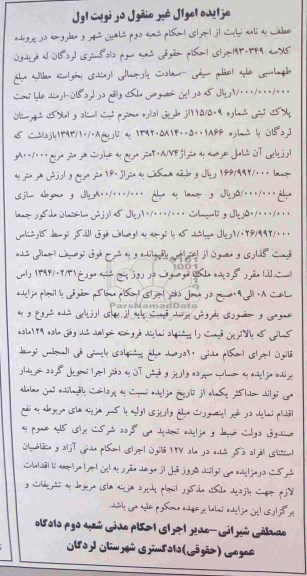 مزایده اموال غیر منقول در نوبت اول
عطف به نامه نیابت از اجرای احکام شعبه دوم شاهین شهر و مطروحه در پرونده
کلاسه ۹۳۰۳۴۹اجرای احکام حقوقی شعبه سوم دادگستری لردگان له فریدون
طهماسبی علیه اعظم سیفی –سعادت یارجمالی ارمندی بخواسته مطالبه مبلغ
۱/۰۰۰/۰۰۰/۰۰۰ریال که در این خصوص ملک واقع در لردگان-ارمند علیا تحت
پلاک ثبتی شماره ۱۱۵/۵۰۹از طریق اداره محترم ثبت اسناد و املاک شهرستان
لردگان با شماره ۱۳۹۲۰۵۸۱۴۰۰۵۰۰۱۸۶۶ به تاریخ۱۳۹۳/۱۰/۰۸بازداشت که
ارزیابی آن شامل عرصه به متراژ۲۰۸/۷۴متر مربع به عبارت هر متر مربع۸۰۰/۰۰۰و
جمعا ۱۶۶/۹۹۲/۰۰۰ ریال و طبقه همکف به متراژ۱۶۰ متر مربع و ارزش هر متر به
مبلغ۵/۰۰۰/۰۰۰ریال و جمعا به مبلغ ۸۰۰/۰۰۰/۰۰۰ریال و محوطه سازی
۵۰/۰۰۰/۰۰۰ریال و تاسیسات ۱۰/۰۰۰/۰۰۰ریال که ارزش ساختمان مذکور جمعا
۱/۰۲۶/۹۹۲/۰۰۰ ریال میباشد که با توجه به اوصاف فوق الذکر توسط کارشناس
قیمت گذاری و مصون از اعتراض باقیمانده و به شرح فوق توصیف اجمالی شده
است.لذا مقرر گردیده ملک موصوف در روز پنج شنبه مورخ۱۳۹۴/۰۲/۳۱ راس
ساعت ۰۸ الی۰۹صبح در محل دفتر اجرای احکام محاکم حقوقی با انجام مزایده
عمومی و حضوری بفروش برسد قیمت پایه از بهای ارزیابی شده شروع و به
کسانی که بالاترین قیمت را پیشنهاد نمایند فروخته خواهد شد وفق ماده ۱۲۹ماده
قانون اجرای احکام مدنی ۱۰درصد مبلغ پیشنهادی بایستی فی المجلس توسط
برنده مزایده به حساب سپرده واریز و فیش آن به دفتر اجرا تحویل گردد خریدار
می تواند حداکثر یکماه از تاریخ مزایده نسبت به پرداخت باقیمانده ثمن معامله
اقدام نماید در غیر اینصورت مبلغ واریزی اولیه با کسر هزینه های مربوطه به نفع
صندوق دولت ضبط و مزایده تجدید می گردد شرکت برای کلیه عموم به
استثنای افراد ذکر شده در ماد ۱۲۷ قانون اجرای احکام مدنی آزاد و متقاضیان
شرکت درمزایده می توانند ۵روز قبل از موعد مقرر به این اجرا مراجعه تا اقدامات
لازم جهت بازدید ملک مذکور انجام پذیرد هزینه های مربوطه به تشریفات و
برگزاری این مزایده تماما برعهده محکوم علیه می باشد.
مصطفی شیرانی–مدیر اجرای احکام مدنی شعبه دوم دادگاه
عمومی (حقوقی)دادگستری شهرستان لردگان